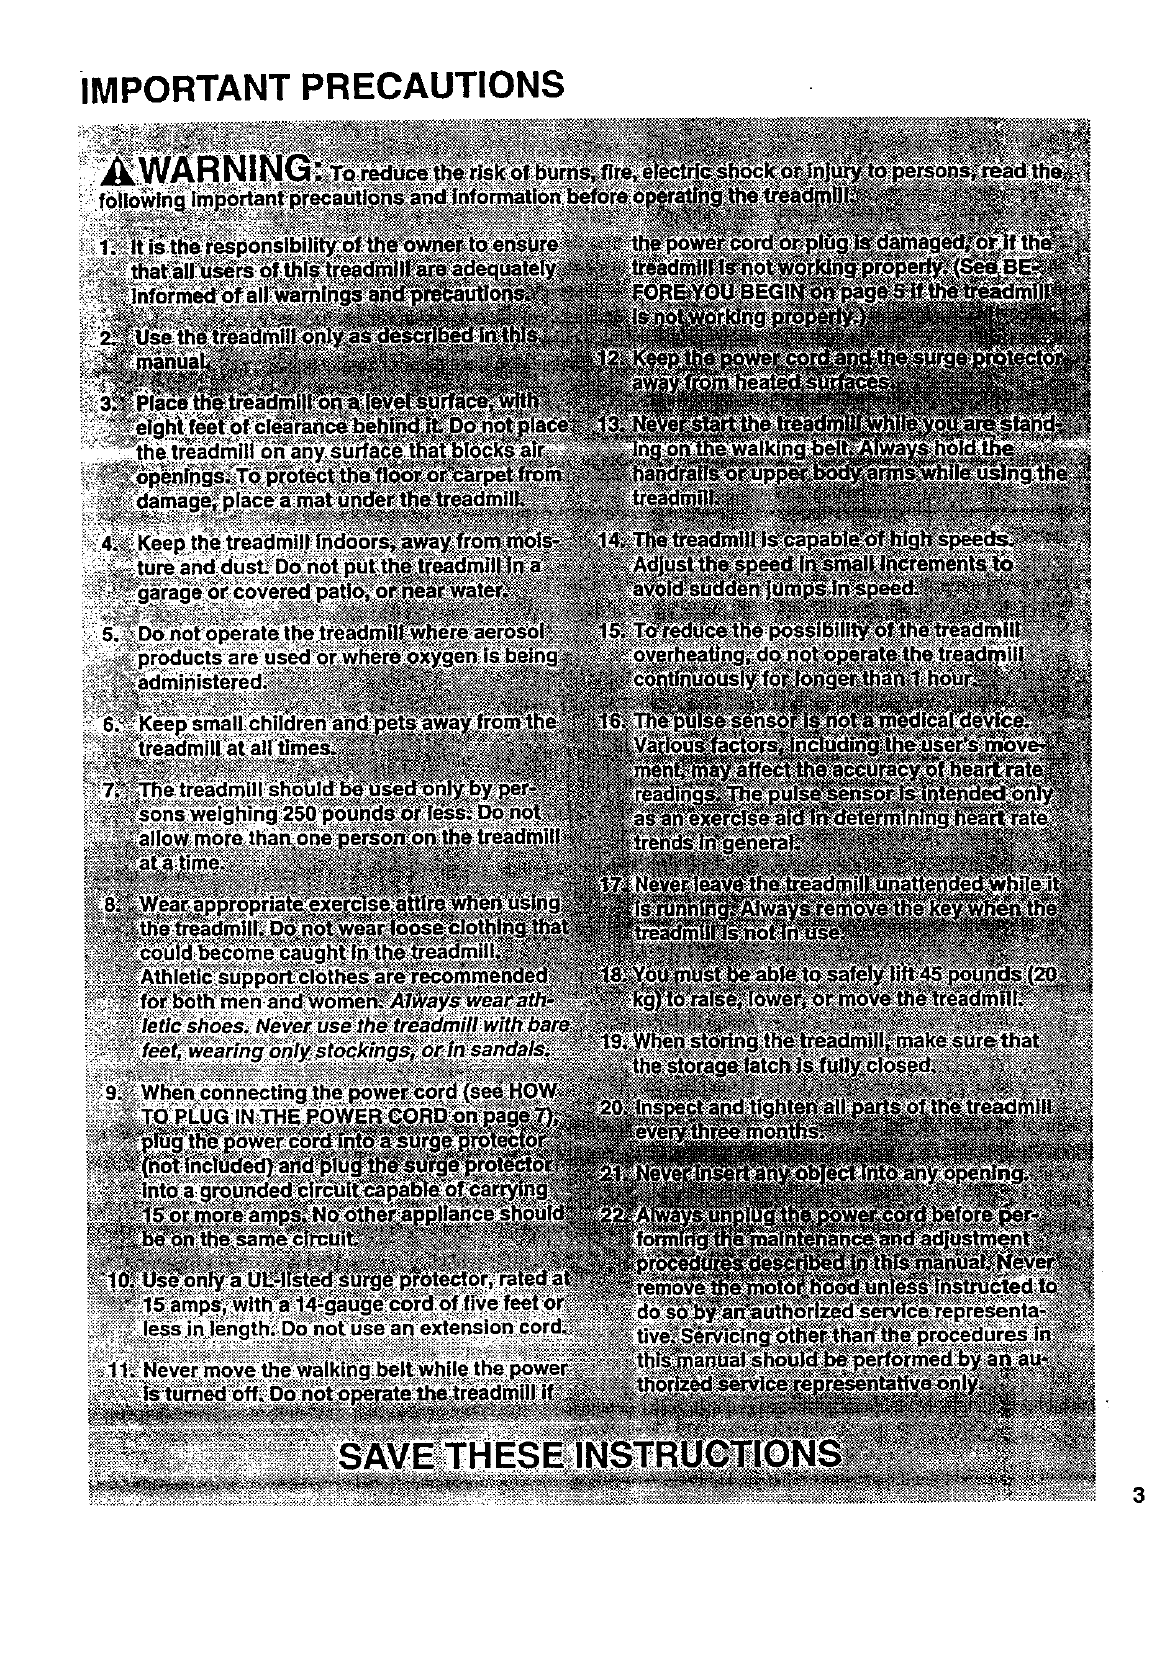 IMPORTANT PRECAUTIONS
WARNING: To reduce the risk of burns, fire, electric shock or injury to persons, read the
following important precautions and information before operating the treadmill.
1. It is the responsibility of the owner to ensure
that all users of this treadmill are adequately
informed of all warnings and precautions.
2. Use the treadmill only as described in this
manual.
3. Place the treadmill on a level surface, with
eight feet of clearance behind it. Do not place
the treadmill on any surface that blocks air
openings. To protect the floor or carpet from
damage, place a mat under the treadmill.
4. Keep the treadmill indoors, away from mois-
ture and dust. Do not put the treadmill in a
garage or covered patio, or near water.
5. Do not operate the treadmill where aerosol
products are used or where oxygen is being
administered.
6. Keep small children and pets away from the
treadmill at all times.
7. The treadmill should be used only by per-
sons weighing 250 pounds or less. Do not
allow more than one person on the treadmill
at a time.
8. Wear appropriate exercise attire when using
the treadmill. Do not wear loose clothing that
could become caught in the treadmill.
Athletic support clothes are recommended
for both men and women. Always wear ath-
letic shoes. Never use the treadmill with bare
feet, wearing only stockings, or in sandals.
9. When connecting the power cord (see HOW
TO PLUG IN THE POWER CORD on page 7),
plug the power cord into a surge protector
(not included) and plug the surge protector
into a grounded circuit capable of carrying
15 or more amps. No other appliance should
be on the same circuit.
10. Use only a UL-listed surge protector, rated at
15 amps, with a 14-gauge cord of five feet or
less in length. Do not use an extension cord.
11. Never move the walking belt while the power
is turned off. Do not operate the treadmill if
the power cord or plug is damaged, or if the
treadmill is not working properly. (See BE-
FORE YOU BEGIN on page 5 if the treadmill
is not working properly.)
12. Keep the power cord and the surge protector
away from heated surfaces.
13. Never start the treadmill while you are stand-
ing on the walking belt. Always hold the
handrails or upper body arms while using the
treadmill.
14. The treadmill is capable of high speeds.
Adjust the speed in small increments to
avoid sudden jumps in speed.
15. To reduce the possibility of the treadmill
overheating, do not operate the treadmill
continuously for longer than 1 hour.
16. The pulse sensor is not a medical device.
Various factors, including the user's move-
ment, may affect the accuracy of heart rate
readings. The pulse sensor is intended only
as an exercise aid in determining heart rate
trends in general.
17. Never leave the treadmill unattended while it
is running. Always remove the key when the
treadmill is not in use.
18. You must be able to safely lift 45 pounds (20
kg) to raise, lower, or move the treadmill.
19. When storing the treadmill, make sure that
the storage latch is fully closed.
20. Inspect and tighten all parts of the treadmill
every three months.
21. Never insert any object into any opening.
22. Always unplug the power cord before per-
forming the maintenance and adjustment
procedures described in this manual. Never
remove the motor hood unless instructed to
do so by an authorized service representa-
tive. Servicing other than the procedures in
this manual should be performed by an au-
thorized service representative only.
SAVE THESE INSTRUCTIONS
3